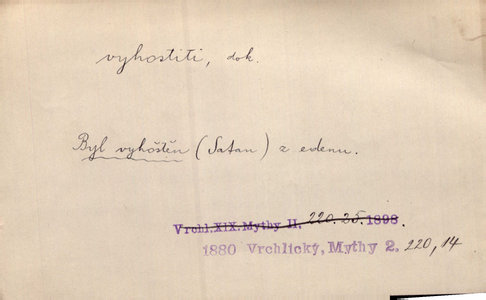 vyhostiti, dok.
Byl vyhoštěn (Satan) z edenu.
Vrchl. XIX. Mythy II. 220.25.1898.
1880 Vrchlický, Mythy 2. 220,14